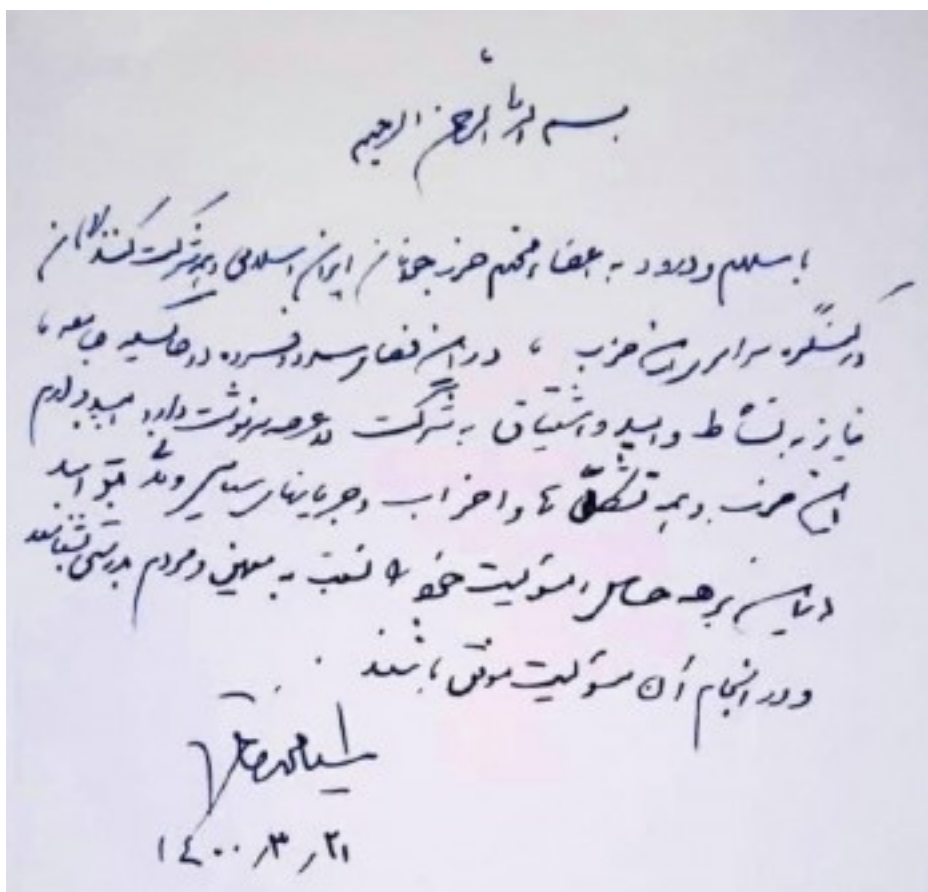 بسم الله الرحمن الرحیم
با سلام و درود به اعضاء محترم حزب جوانان ایران اسلامی و همه شرکت کنندگان
در کنگره سراسری این حزب ، در این فضای سرد و افسرده که حاکم بر جامعه ،
نیاز به نشاط و امید و اشتیاق به شرکت در عرصه سرنوشت دارد امیدوارم
این حزب و همه تشکل ها و احزاب و جریانهای سیاسی و مدنی بتوانند
در این برهه حساس مسئولیت خود را نسبت به میهن و مردم بدرستی بشناسند
و در انجام آن مسئولیت موفق باشند .
سید محمد خاتمی
۱۴۰۰٫۳٫۲۱